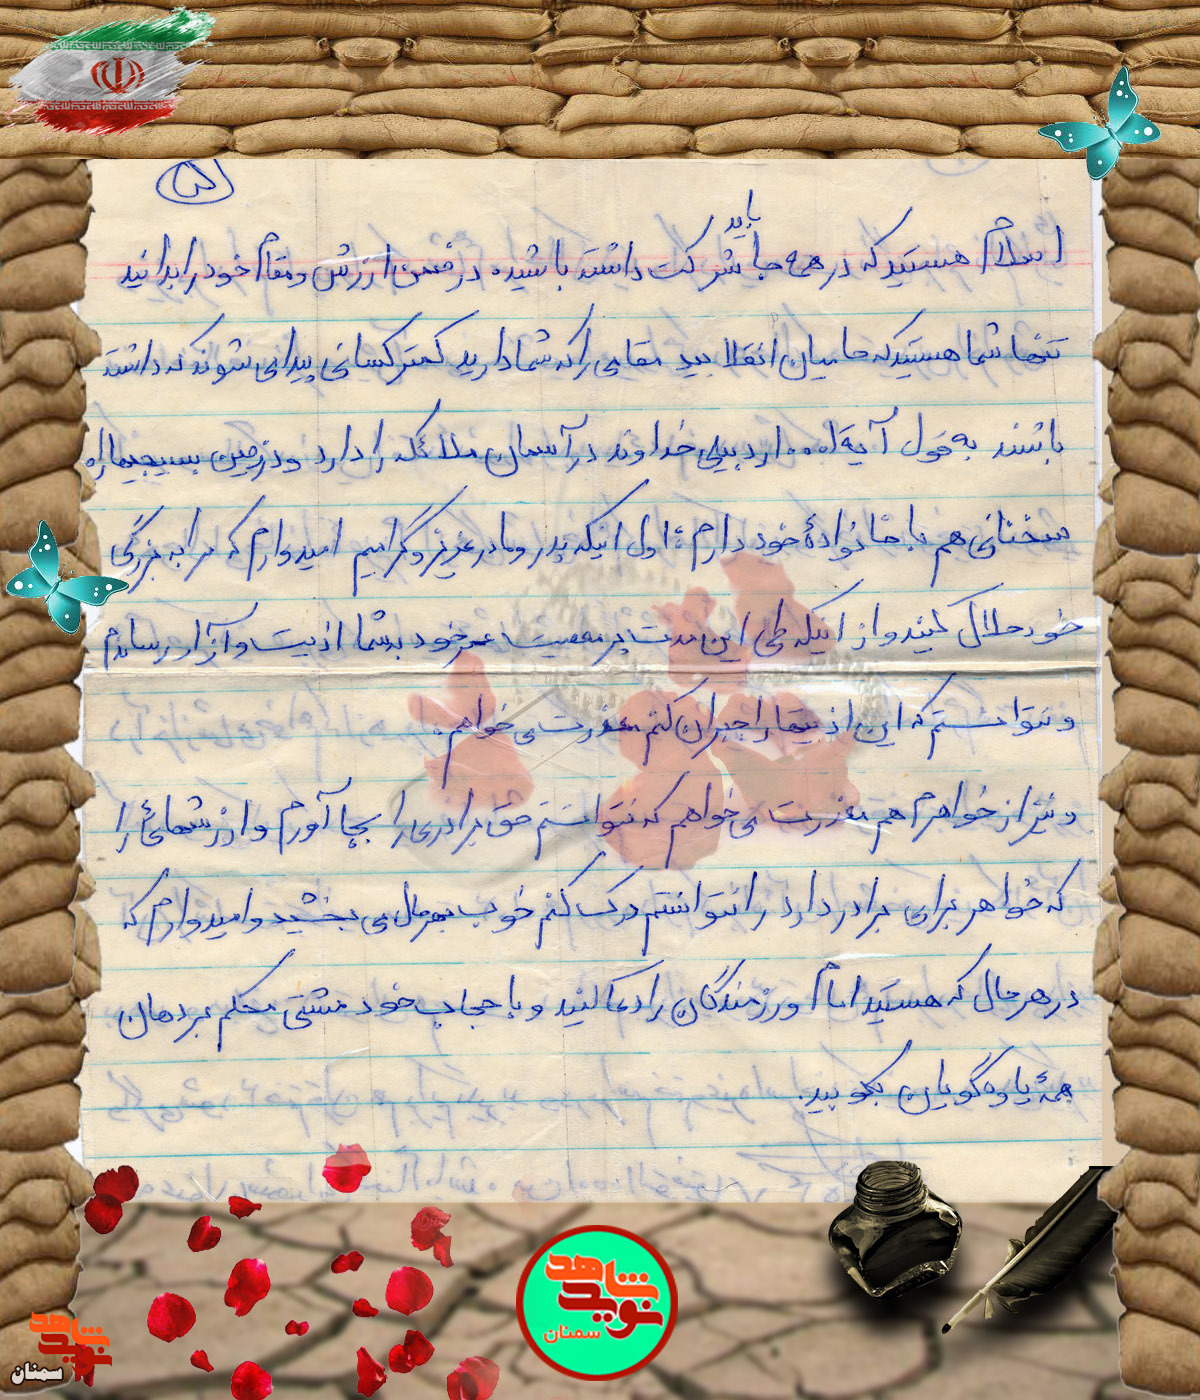 ۵
باید
اسلام هستید که در همه جا شرکت داشته باشید. در ضمن ارزش و مقام خود را بدانید
تنها شما هستید که حامیان انقلابید مقامی را که شما دارید کمتر کسانی پیدا می شوند که داشته
باشند به قول آیة ا... اردبیلی خداوند در آسمان ملائکه را دارد و در زمین بسیجیها را
سخنانی هم با خانوادهٔ خود دارم: اول اینکه پدر و مادر عزیز و گرامیم امیدوارم که مرا به بزرگی
خود حلال کنید و از اینکه طی این مدت پر معصیت عمر خود به شما اذیت و آزار رساندم
و نتوانستم که این اذیتها را جبران کنم معذرت می خواهم.
و نیز از خواهرم هم معذرت می خواهم که نتوانستم حق برادری را بجا آورم و ارزشهائی را
که خواهر برای برادر دارد را نتوانستم درک کنم خوب بهرحال می بخشید و امیدوارم که
در هر حال که هستید امام و رزمندگان را دعا کنید و با حجاب خود مشتی محکم بر دهان
همهٔ یاوه گویان بکوبید.
نوید شاهد
سمنان
نوید شاهد
سمنان